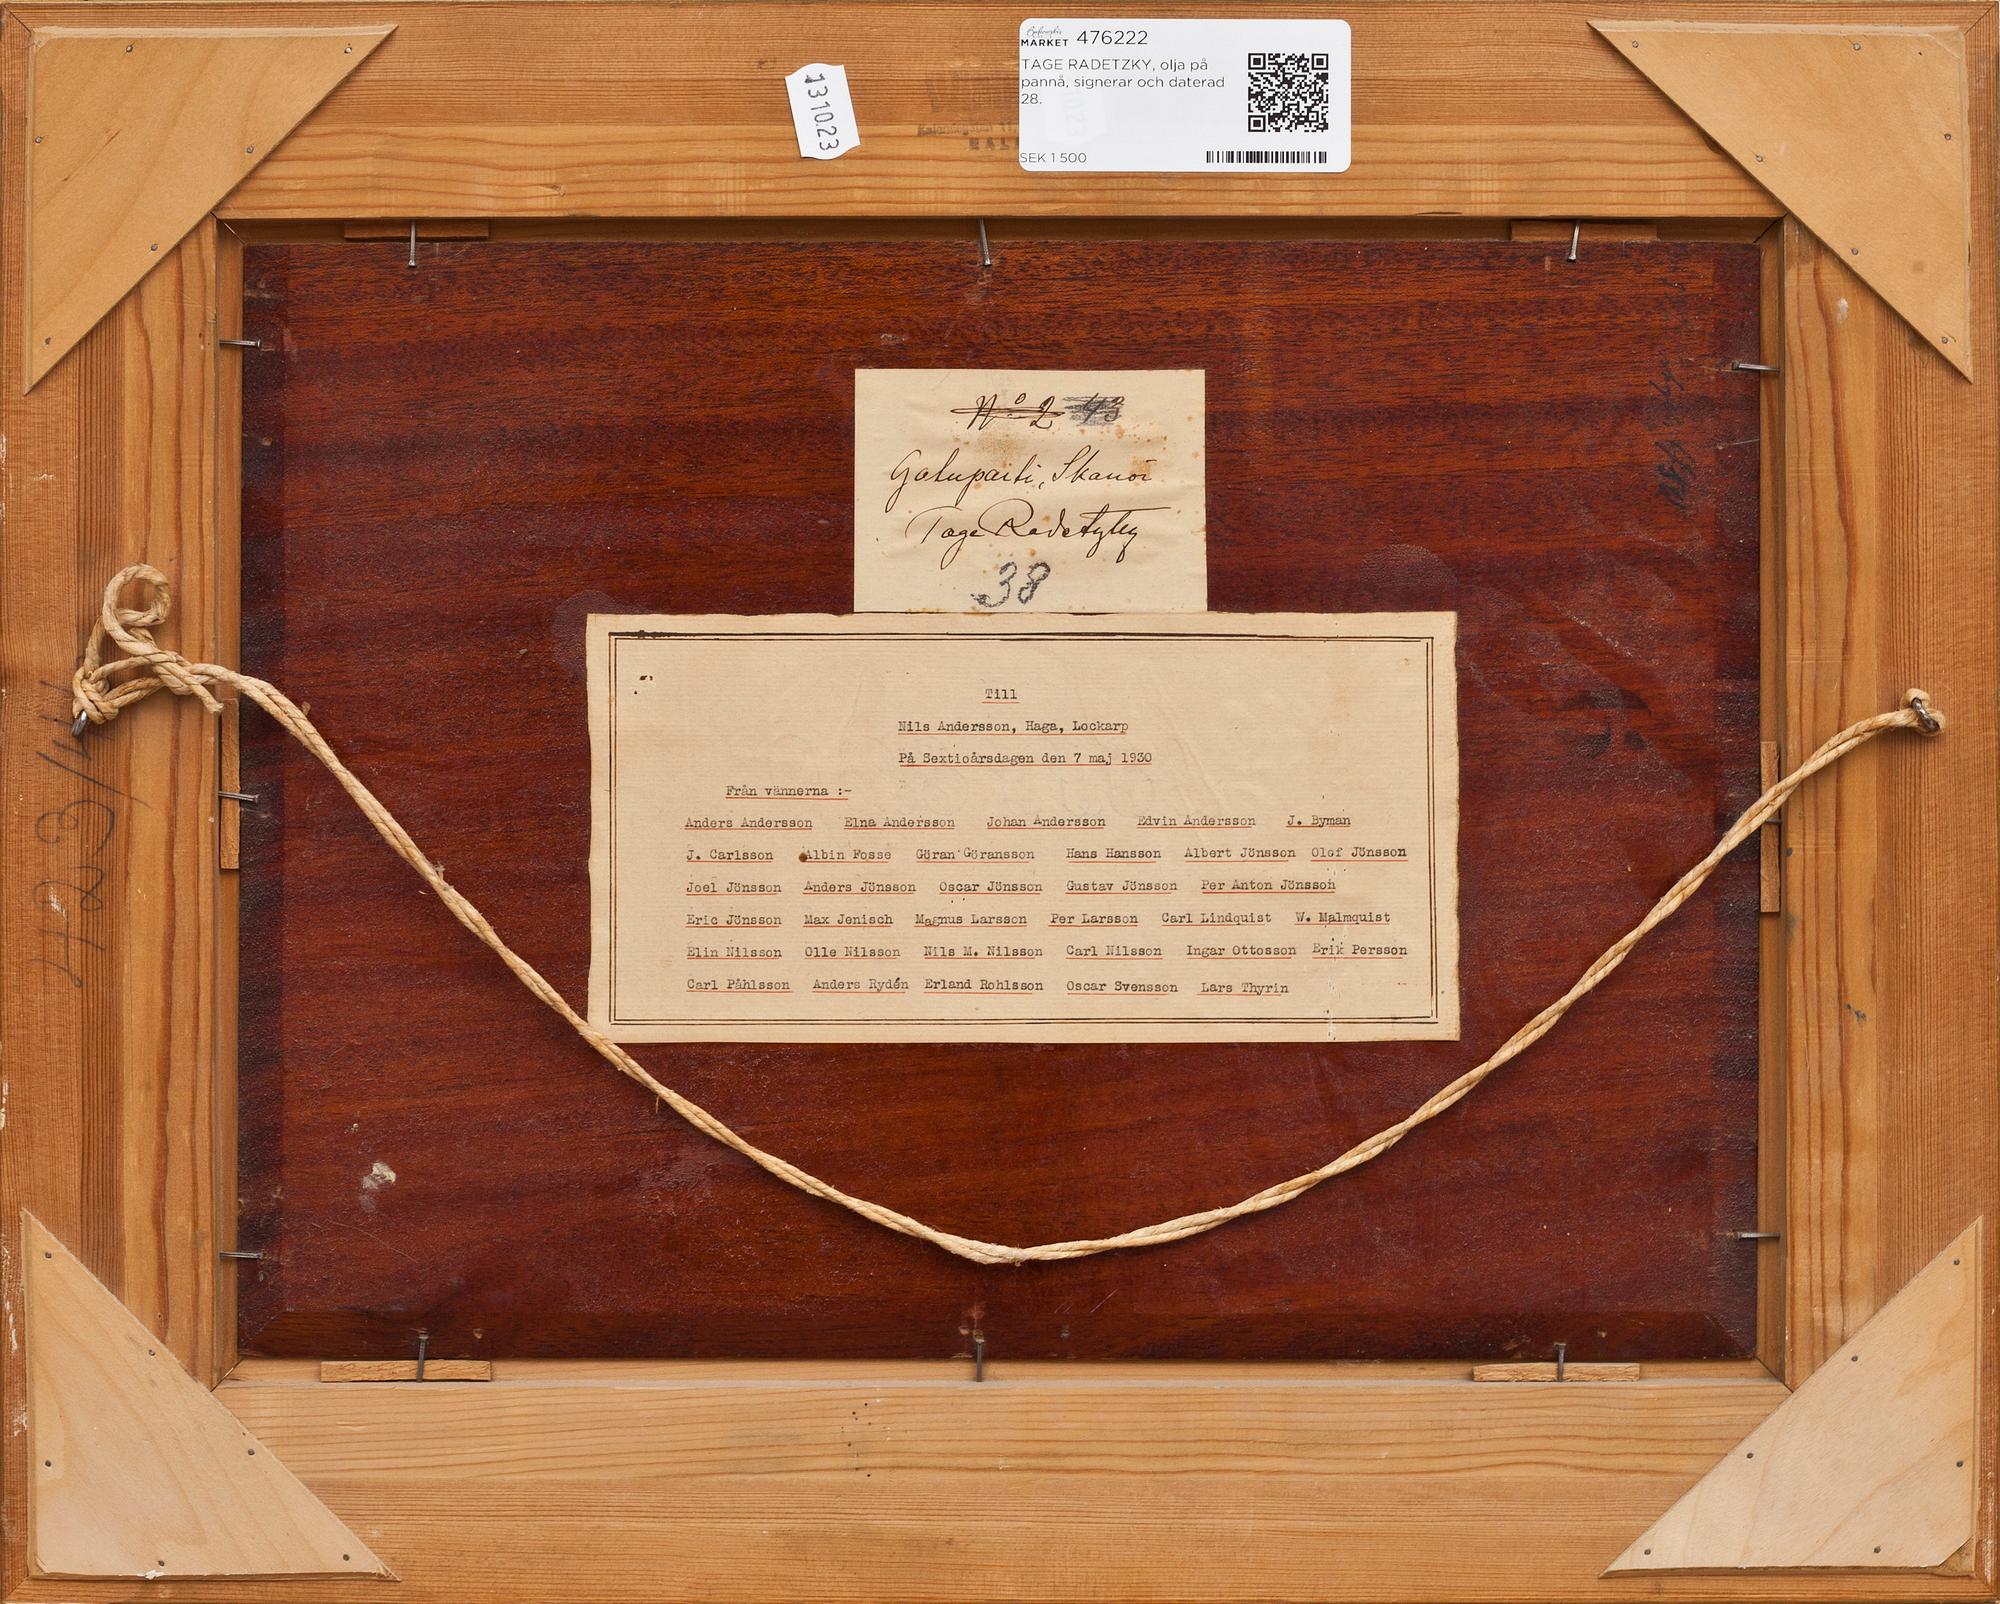 Bukowskis
MARKET 476222
TAGE RADETZKY, olja på
pannå, signerar och daterad
28.
SEK 1 500
131023
No 2 43
Gatuparti, Skanör
Tage Radetzky
38
Till
Nils Andersson, Haga, Lockarp
På Sextioårsdagen den 7 maj 1930
Från vännerna :-
Anders Andersson Elna Andersson Johan Andersson Edvin Andersson J. Byman
J. Carlsson Albin Fosse Göran Göransson Hans Hansson Albert Jönsson Olof Jönsson
Joel Jönsson Anders Jönsson Oscar Jönsson Gustav Jönsson Per Anton Jönsson
Eric Jönsson Max Jenisch Magnus Larsson Per Larsson Carl Lindquist W. Malmquist
Elin Nilsson Olle Nilsson Nils M. Nilsson Carl Nilsson Ingar Ottosson Erik Persson
Carl Påhlsson Anders Rydén Erland Rohlsson Oscar Svensson Lars Thyrin